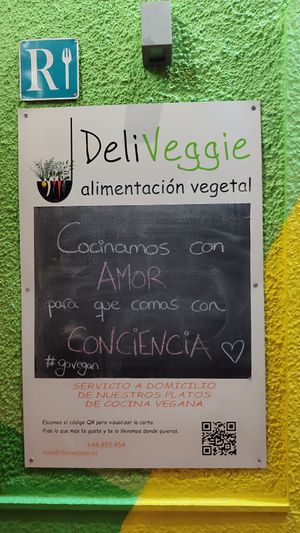 R
DeliVeggie
alimentación vegetal
Cocinamos con
AMOR
para que comas con
CONCIENCIA
#govegan
SERVICIO A DOMICILIO
DE NUESTROS PLATOS
DE COCINA VEGANA
Escanea el código QR para visualizar la carta.
Pide lo que más te guste y te lo llevamos donde quieras.
648 855 454
hola@deliveggie.es